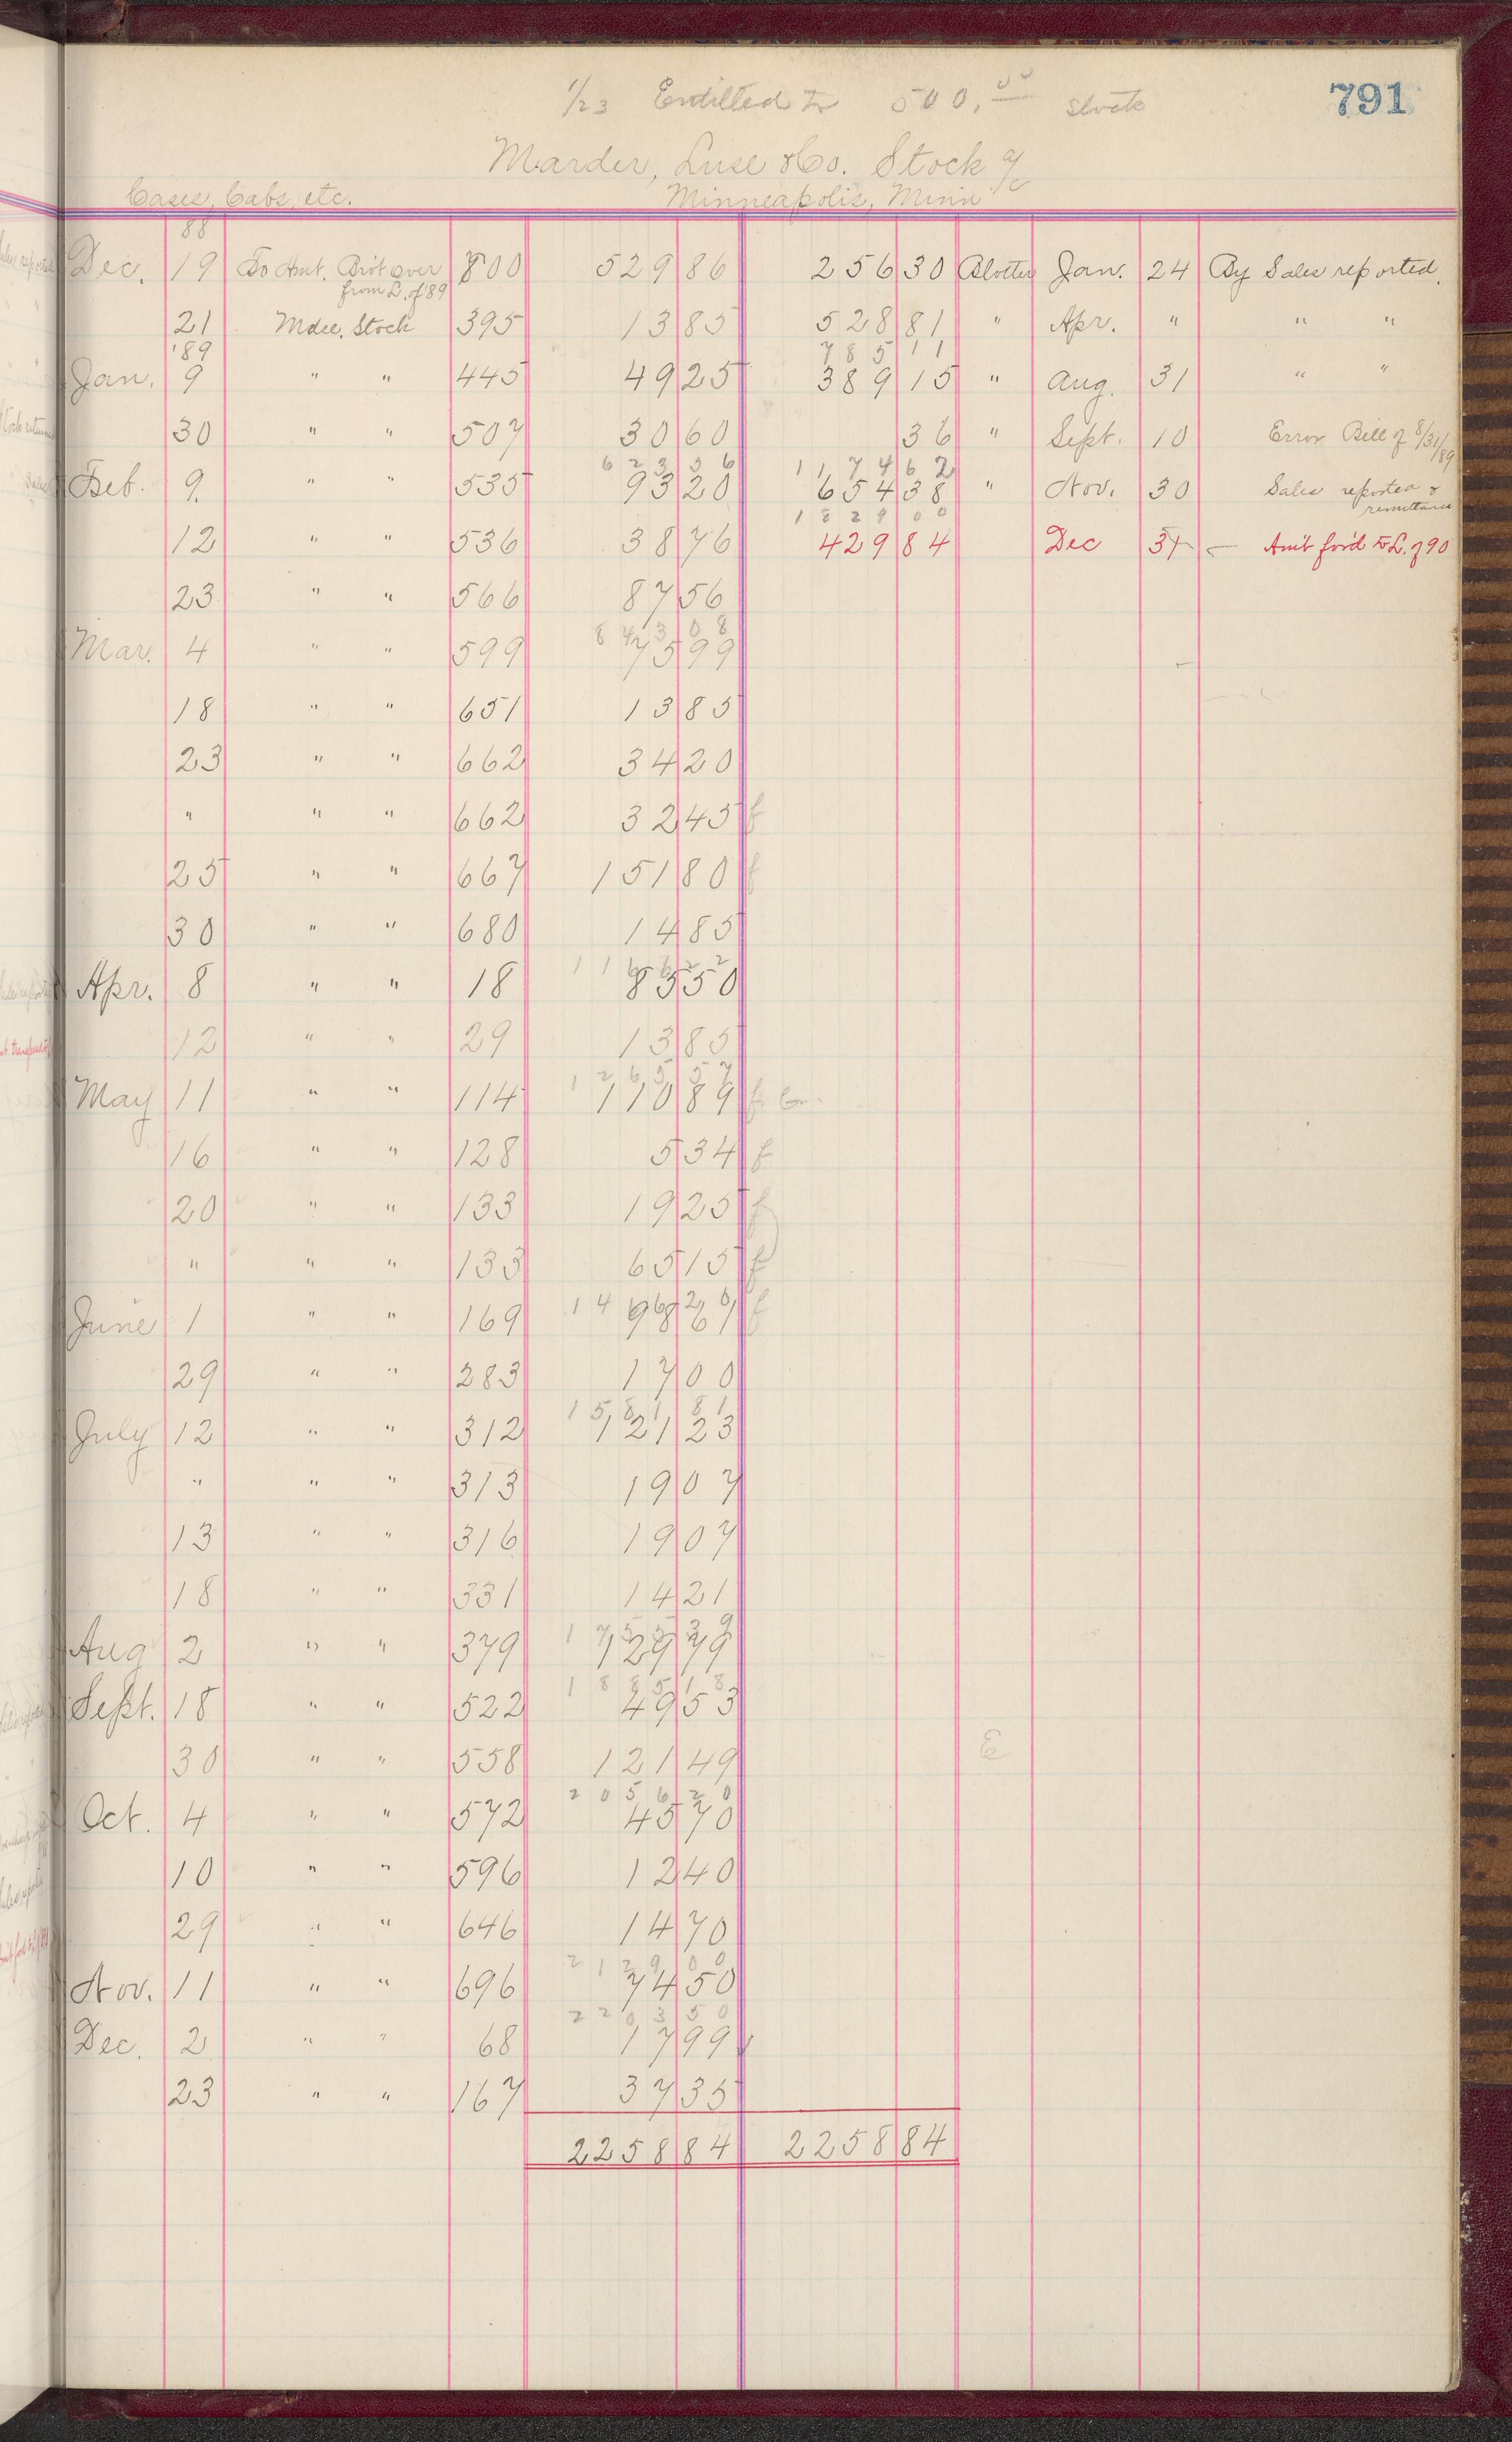 791
1/23 Entitled to 500.00 Stock
Marder, Luse & Co. Stock a/c
Cases, Cabs, etc. Minneapolis, Minn
88
Dec. 19 To Amt. Bro't over 800 529 86 256 30 Blotter Jan. 24 By Sales reported.
from L. of '89
21 Mdse. Stock 395 13 85 528 81 " Apr. " " "
'89 785 11
Jan. 9 " " 445 49 25 389 15 " Aug. 31 " "
30 " " 507 30 60 36 " Sept. 10 Error Bill of 8/31/89
623 36 1174 62
Feb. 9. " " 535 93 20 654 38 " Nov. 30 Sales reported & remittance
1829 00
12 " " 536 38 76 429 84 Dec 31 Am't for'd to L. of 90
23 " " 566 87 56
843 08
Mar. 4 " " 599 75 99
18 " " 651 13 85
23 " " 662 34 20
" " " 662 32 45 f
25 " " 667 151 80 f
30 " " 680 14 85
1166 22
Apr. 8 " " 18 85 50
12 " " 29 13 85
1265 57
May 11 " " 114 110 89 f
16 " " 128 5 34 f
20 " " 133 19 25 f
" " " 133 65 15 f
1466 26
June 1 " " 169 98 61 f
29 " " 283 17 00
1581 81
July 12 " " 312 121 23
" " " 313 19 07
13 " " 316 19 07
18 " " 331 14 21
1755 39
Aug 2 " " 379 129 79
1885 18
Sept. 18 " " 522 49 53
30 " " 558 121 49
2056 20
Oct. 4 " " 572 45 70
10 " " 596 12 40
29 " " 646 14 70
2129 00
Nov. 11 " " 696 74 50
2203 50
Dec. 2 " " 68 17 99
23 " " 167 37 35
2258 84 2258 84